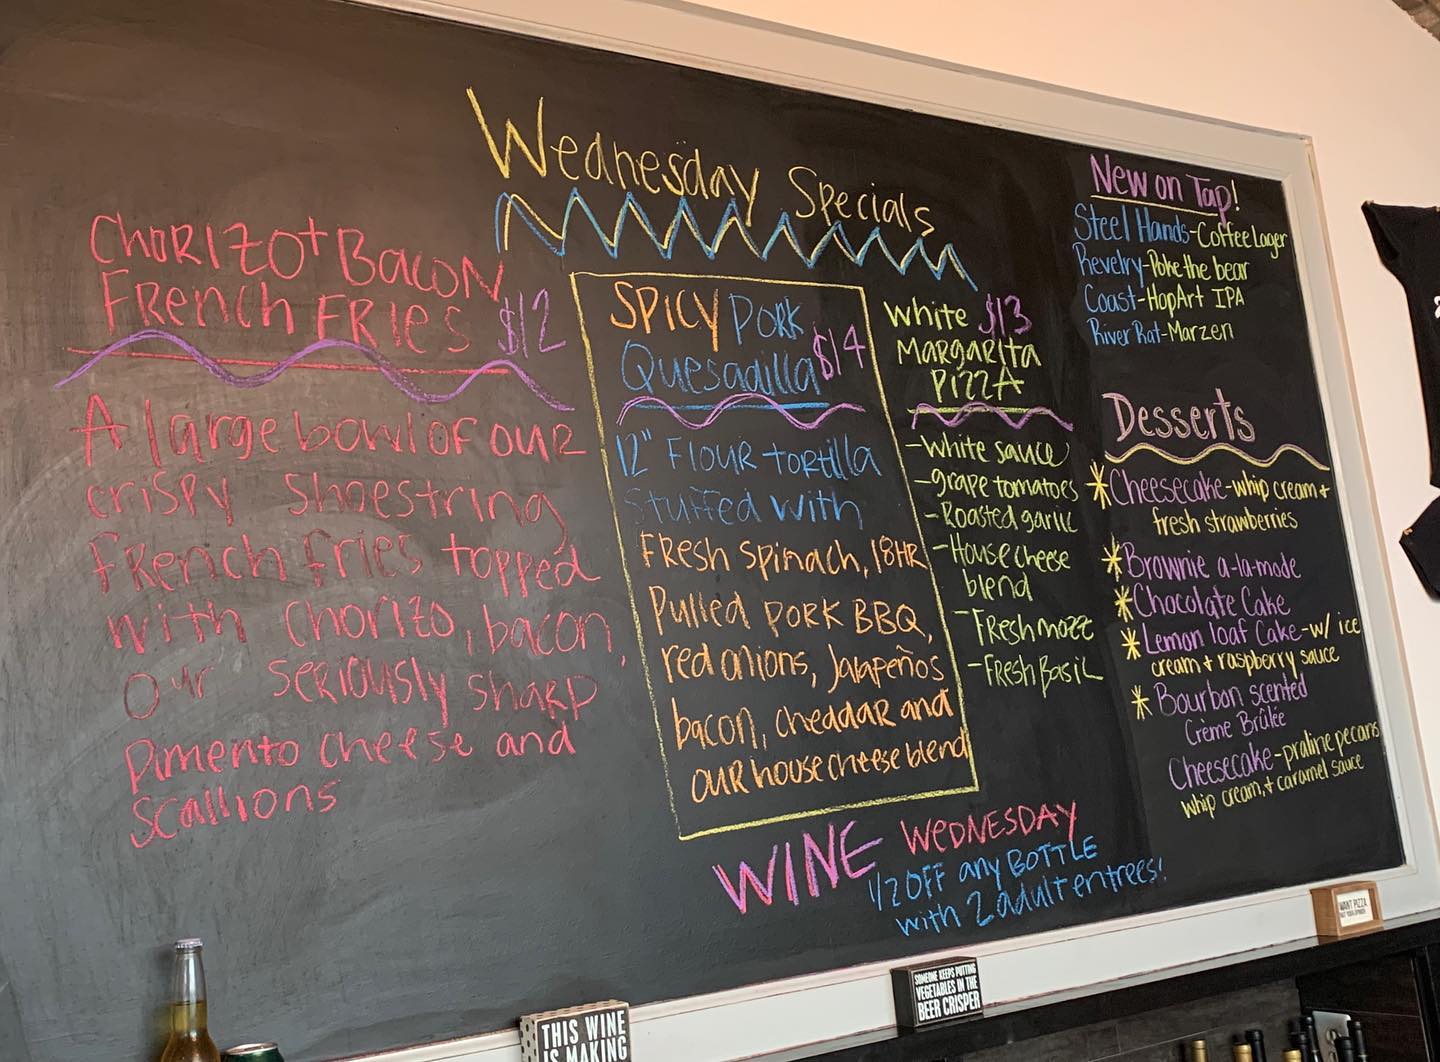 Wednesday Specials
Chorizo + Bacon
French Fries $12
A large bowl of our
crispy shoestring
French fries topped
with chorizo, bacon,
our seriously sharp
pimento cheese and
scallions
Spicy Pork
Quesadilla $14
12" Flour tortilla
stuffed with
Fresh spinach, 18HR
Pulled pork BBQ,
red onions, Jalapeños
bacon, cheddar and
our house cheese blend
White $13
Margarita
Pizza
-White sauce
-grape tomatoes
-Roasted garlic
-House cheese
blend
-Fresh mozz
-Fresh Basil
WINE WEDNESDAY
1/2 OFF any BOTTLE
with 2 adult entrees!
New on Tap!
Steel Hands-Coffee Lager
Revelry-Poke the bear
Coast-HopArt IPA
River Rat-Marzen
Desserts
Cheesecake-whip cream +
fresh strawberries
Brownie a-la-mode
Chocolate Cake
Lemon loaf Cake-w/ ice
cream + raspberry sauce
Bourbon scented
Crème Brûlée
Cheesecake-praline pecans
whip cream, + caramel sauce
THIS WINE
IS MAKING
SOMEONE KEEPS PUTTING
VEGETABLES IN THE
BEER CRISPER
WANT PIZZA